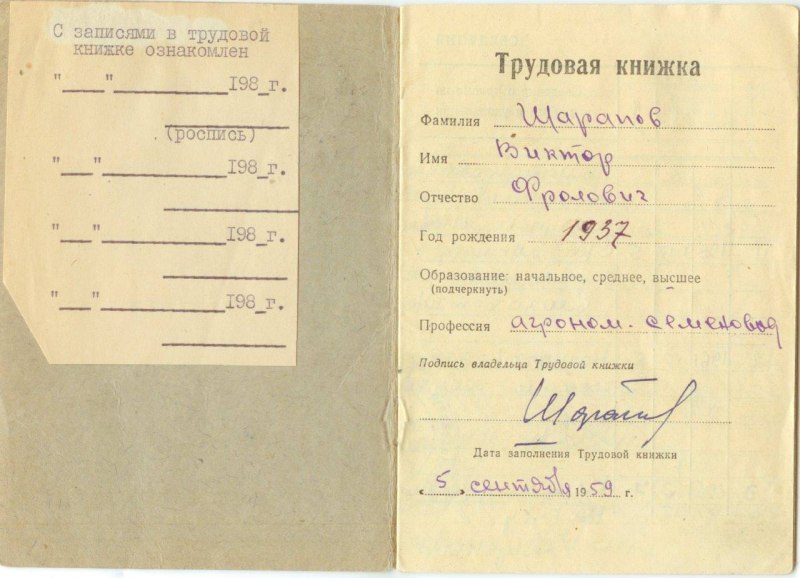 С записями в трудовой
книжке ознакомлен
"__"__________198_г.
(роспись)
"__"__________198_г.
"__"__________198_г.
"__"__________198_г.
Трудовая книжка
Фамилия Шарапов
Имя Виктор
Отчество Фролович
Год рождения 1937
Образование: начальное, среднее, высшее
(подчеркнуть)
Профессия агроном-семеновод
Подпись владельца Трудовой книжки
Шарапов
Дата заполнения Трудовой книжки
„5„ сентября 1959 г.